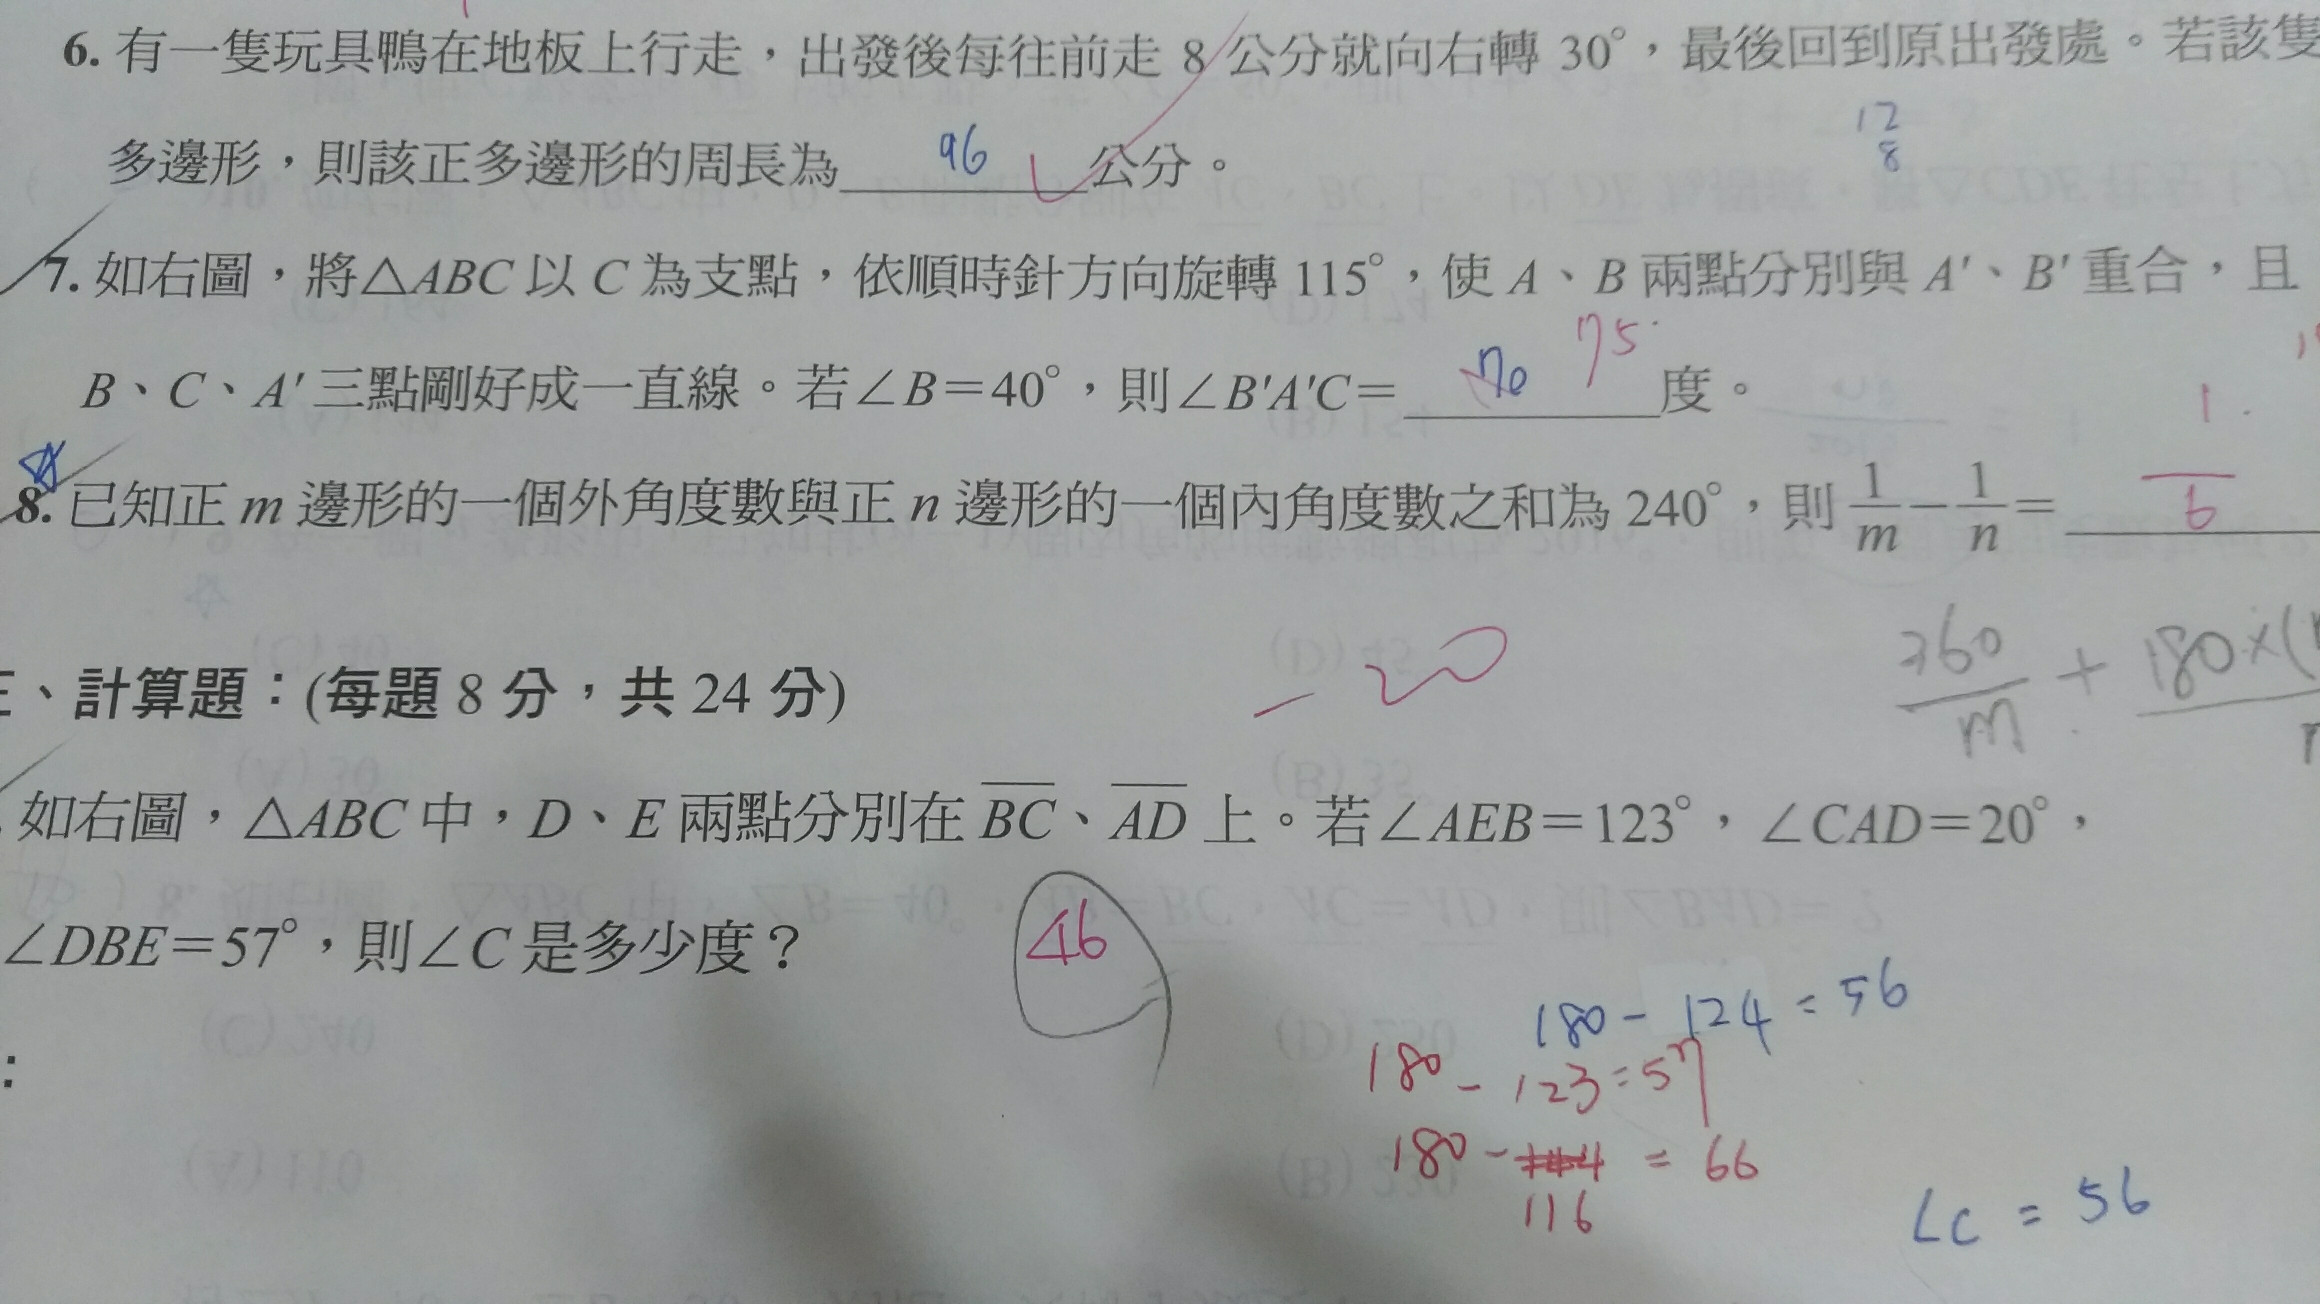 6. 有一隻玩具鴨在地板上行走，出發後每往前走 8 公分就向右轉 30°，最後回到原出發處。若該隻
12
8
多邊形，則該正多邊形的周長為 96 公分。
7. 如右圖，將△ABC 以 C 為支點，依順時針方向旋轉 115°，使 A、B 兩點分別與 A'、B' 重合，且
B、C、A' 三點剛好成一直線。若∠B=40°，則∠B'A'C= 70 75 度。
8. 已知正 m 邊形的一個外角度數與正 n 邊形的一個內角度數之和為 240°，則 1/m − 1/n = 1/6
360/m + 180×(
、計算題：(每題 8 分，共 24 分) −20
如右圖，△ABC 中，D、E 兩點分別在 BC、AD 上。若∠AEB=123°，∠CAD=20°，
∠DBE=57°，則∠C 是多少度？ 46
180 − 124 = 56
180 − 123 = 57
180 − 116 = 66
∠C = 56